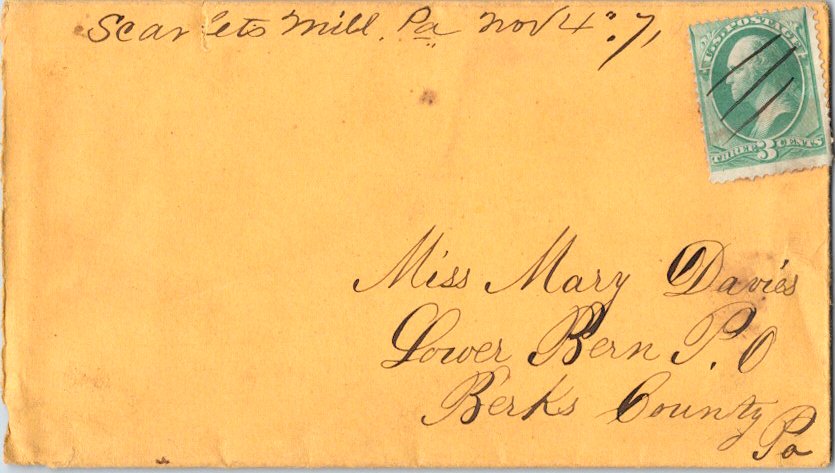 Scarlets Mill, Pa Nov 4" 71
U.S. POSTAGE
THREE 3 CENTS
Miss Mary Davies
Lower Bern P.O
Berks County
Pa